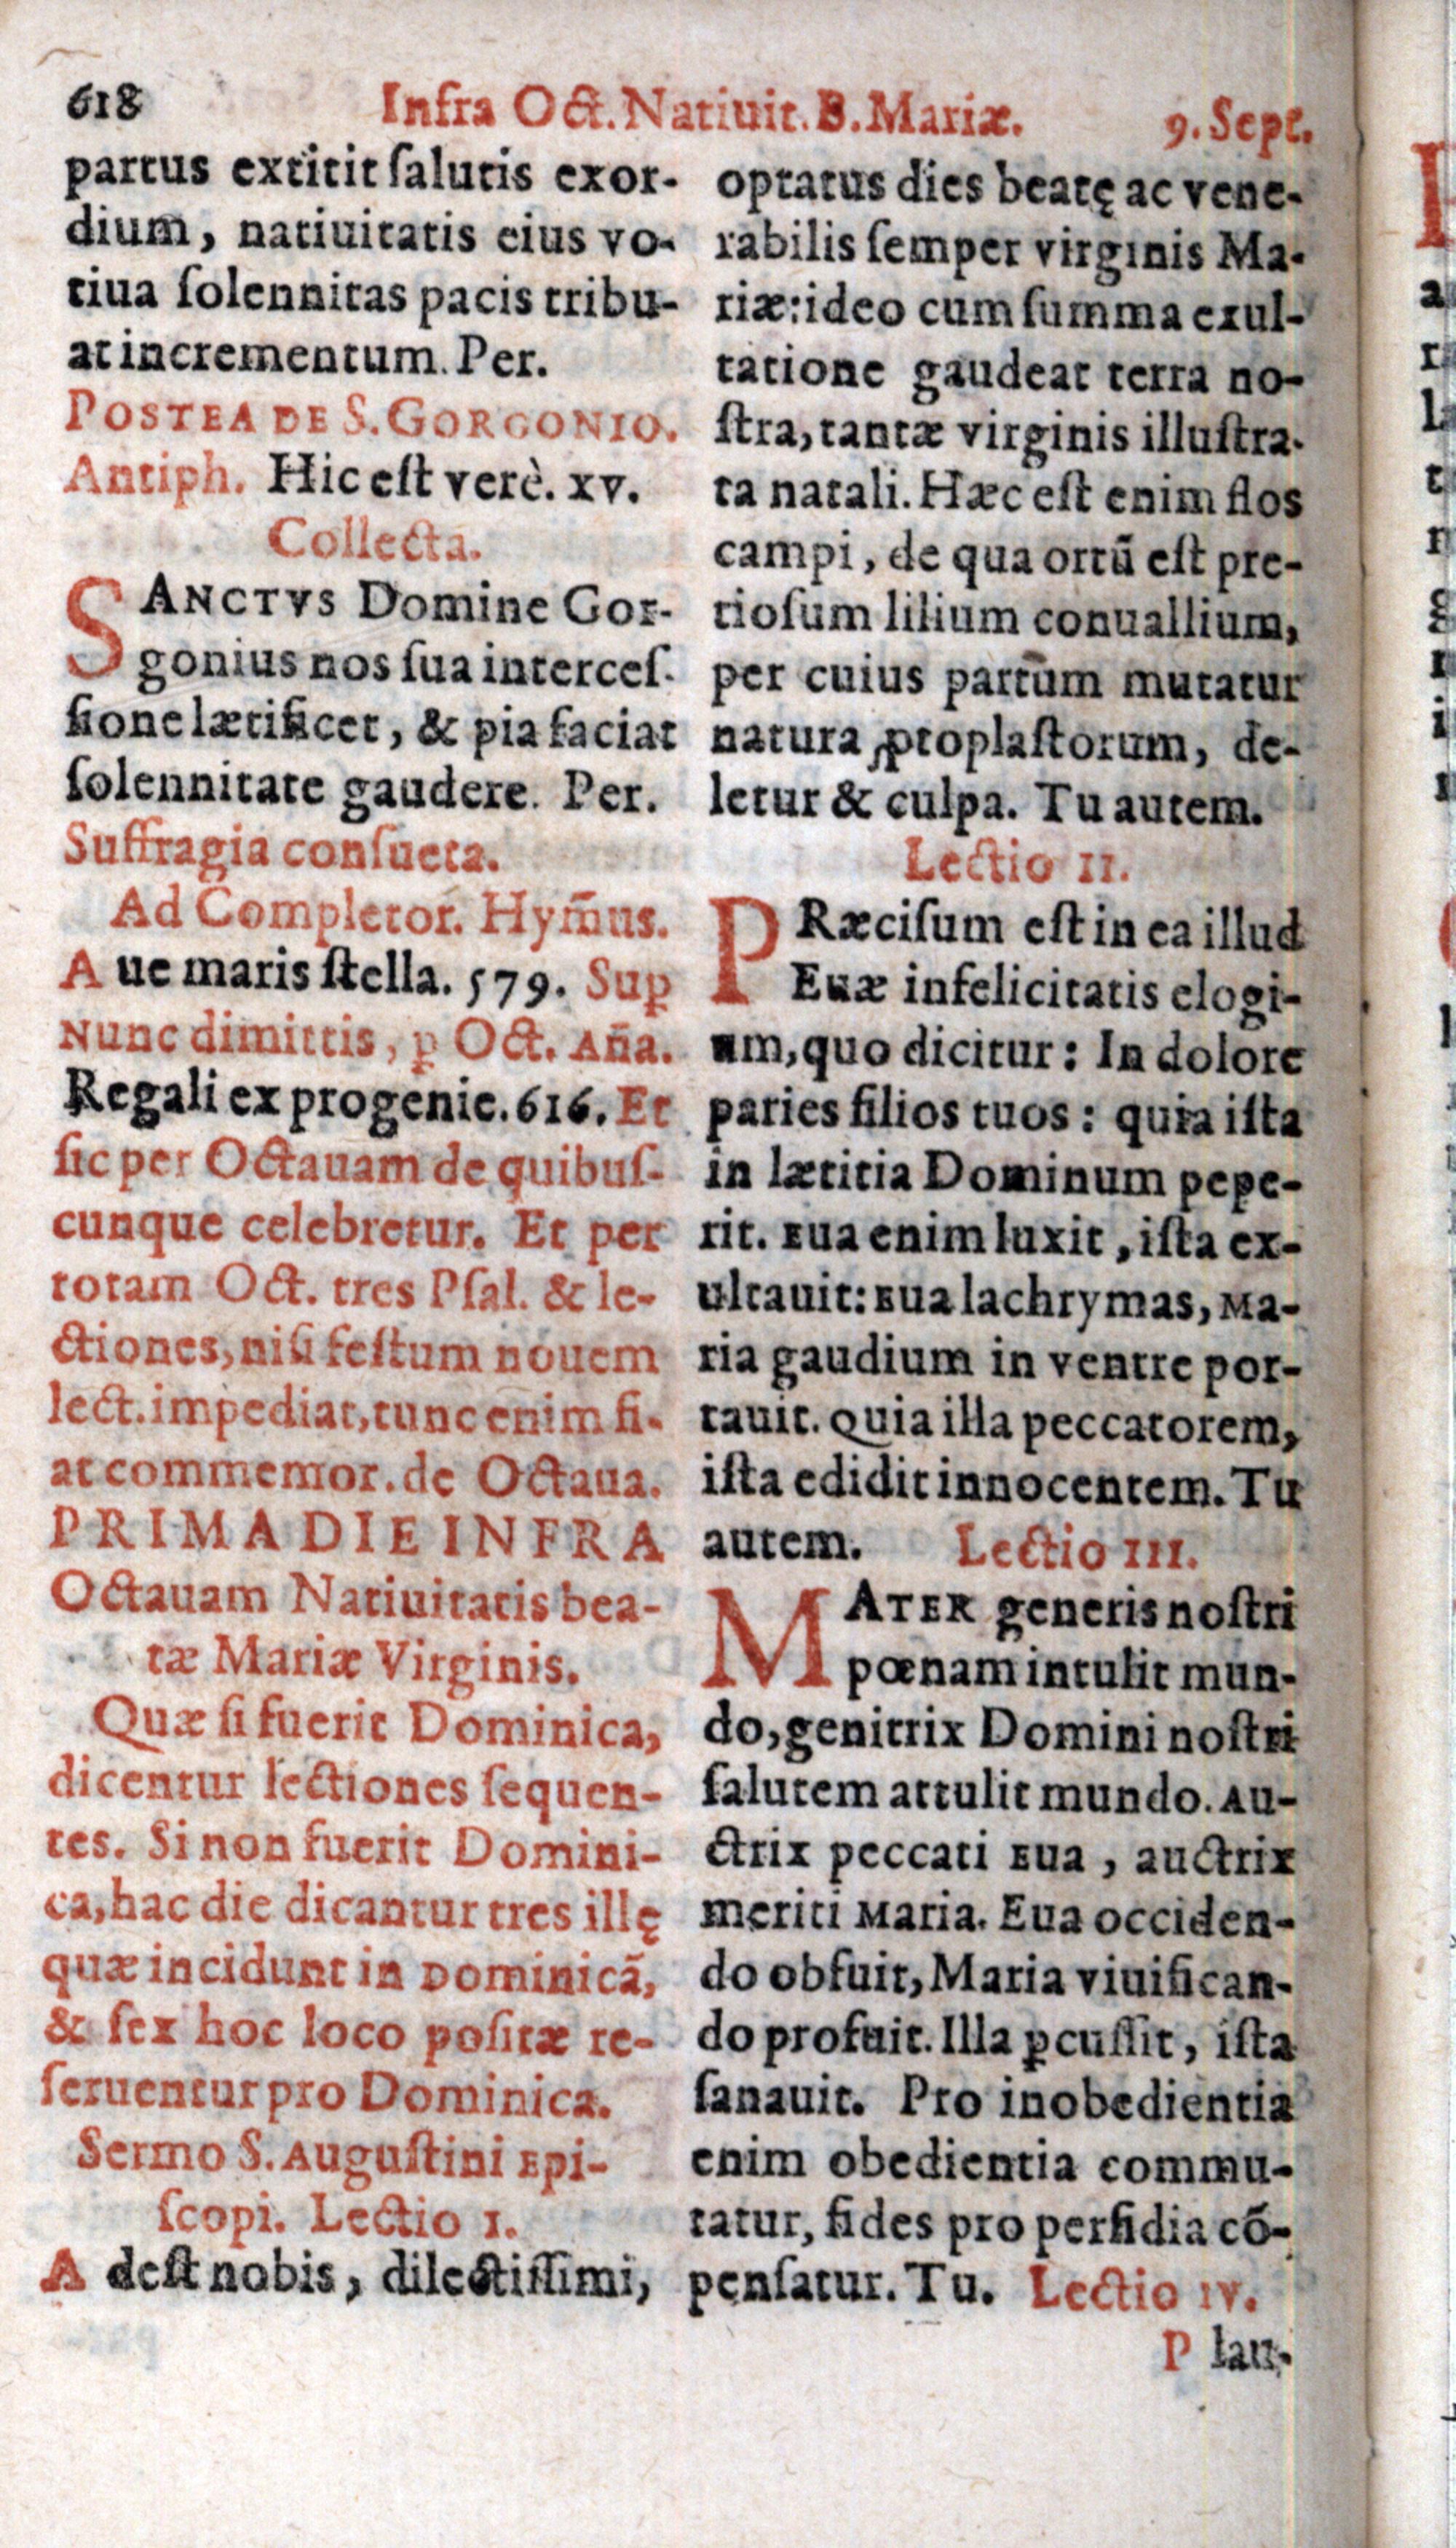 618 Infra Oct. Natiuit. B. Mariæ. 9. Sept.
partus extitit ſalutis exor-
dium, natiuitatis eius vo-
tiua ſolennitas pacis tribu-
at incrementum. Per.
POSTEA DE S. GORGONIO.
Antiph. Hic eſt verè. xv.
Collecta.
SANCTVS Domine Gor-
gonius nos ſua interceſ-
ſione lætificet, & pia faciat
ſolennitate gaudere. Per.
Suffragia conſueta.
Ad Completor. Hym̃us.
Aue maris ſtella. 579. Suꝑ
Nunc dimittis, ꝑ Oct. Aña.
Regali ex progenie. 616. Et
ſic per Octauam de quibuſ-
cunque celebretur. Et per
totam Oct. tres Pſal. & le-
ctiones, niſi feſtum nouem
lect. impediat, tunc enim fi-
at commemor. de Octaua.
PRIMA DIE INFRA
Octauam Natiuitatis bea-
tæ Mariæ Virginis.
Quæ ſi fuerit Dominica,
dicentur lectiones ſequen-
tes. Si non fuerit Domini-
ca, hac die dicantur tres illę
quæ incidunt in Dominicã,
& ſex hoc loco poſitæ re-
ſeruentur pro Dominica.
Sermo S. Auguſtini Epi-
ſcopi. Lectio I.
Adeſt nobis, dilectiſſimi,
optatus dies beatę ac vene-
rabilis ſemper virginis Ma-
riæ: ideo cum ſumma exul-
tatione gaudeat terra no-
ſtra, tantæ virginis illuſtra-
ta natali. Hæc eſt enim flos
campi, de qua ortũ eſt pre-
tioſum lilium conuallium,
per cuius partum mutatur
natura ꝓtoplaſtorum, de-
letur & culpa. Tu autem.
Lectio II.
PRæciſum eſt in ea illud
Euæ infelicitatis elogi-
um, quo dicitur: In dolore
paries filios tuos: quia iſta
in lætitia Dominum pepe-
rit. Eua enim luxit, iſta ex-
ultauit: Eua lachrymas, Ma-
ria gaudium in ventre por-
tauit. Quia illa peccatorem,
iſta edidit innocentem. Tu
autem. Lectio III.
MATER generis noſtri
pœnam intulit mun-
do, genitrix Domini noſtri
ſalutem attulit mundo. Au-
ctrix peccati Eua, auctrix
meriti Maria. Eua occiden-
do obfuit, Maria viuifican-
do profuit. Illa ꝑcuſſit, iſta
ſanauit. Pro inobedientia
enim obedientia commu-
tatur, fides pro perfidia cõ-
penſatur. Tu. Lectio IV.
P lau-